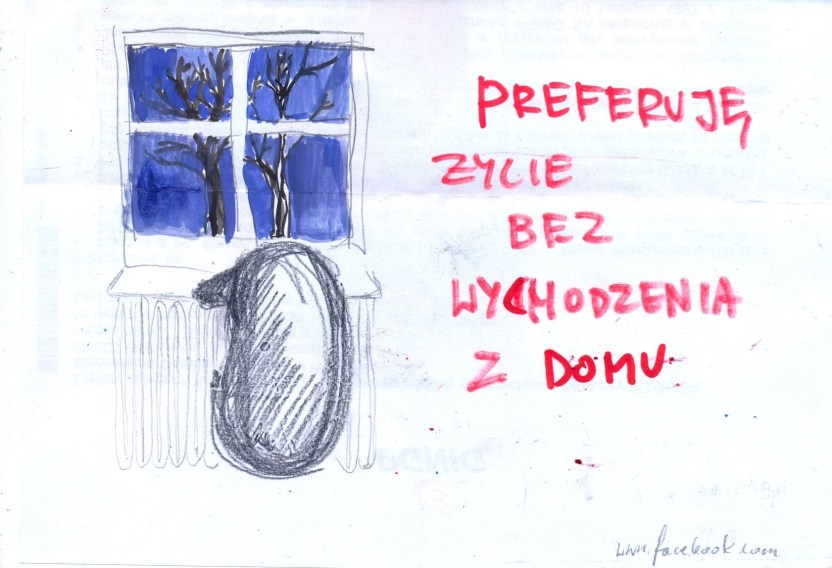 PREFERUJĘ
ZYCIE
BEZ
WYCHODZENIA
Z DOMU
www.facebook.com
PGNIG